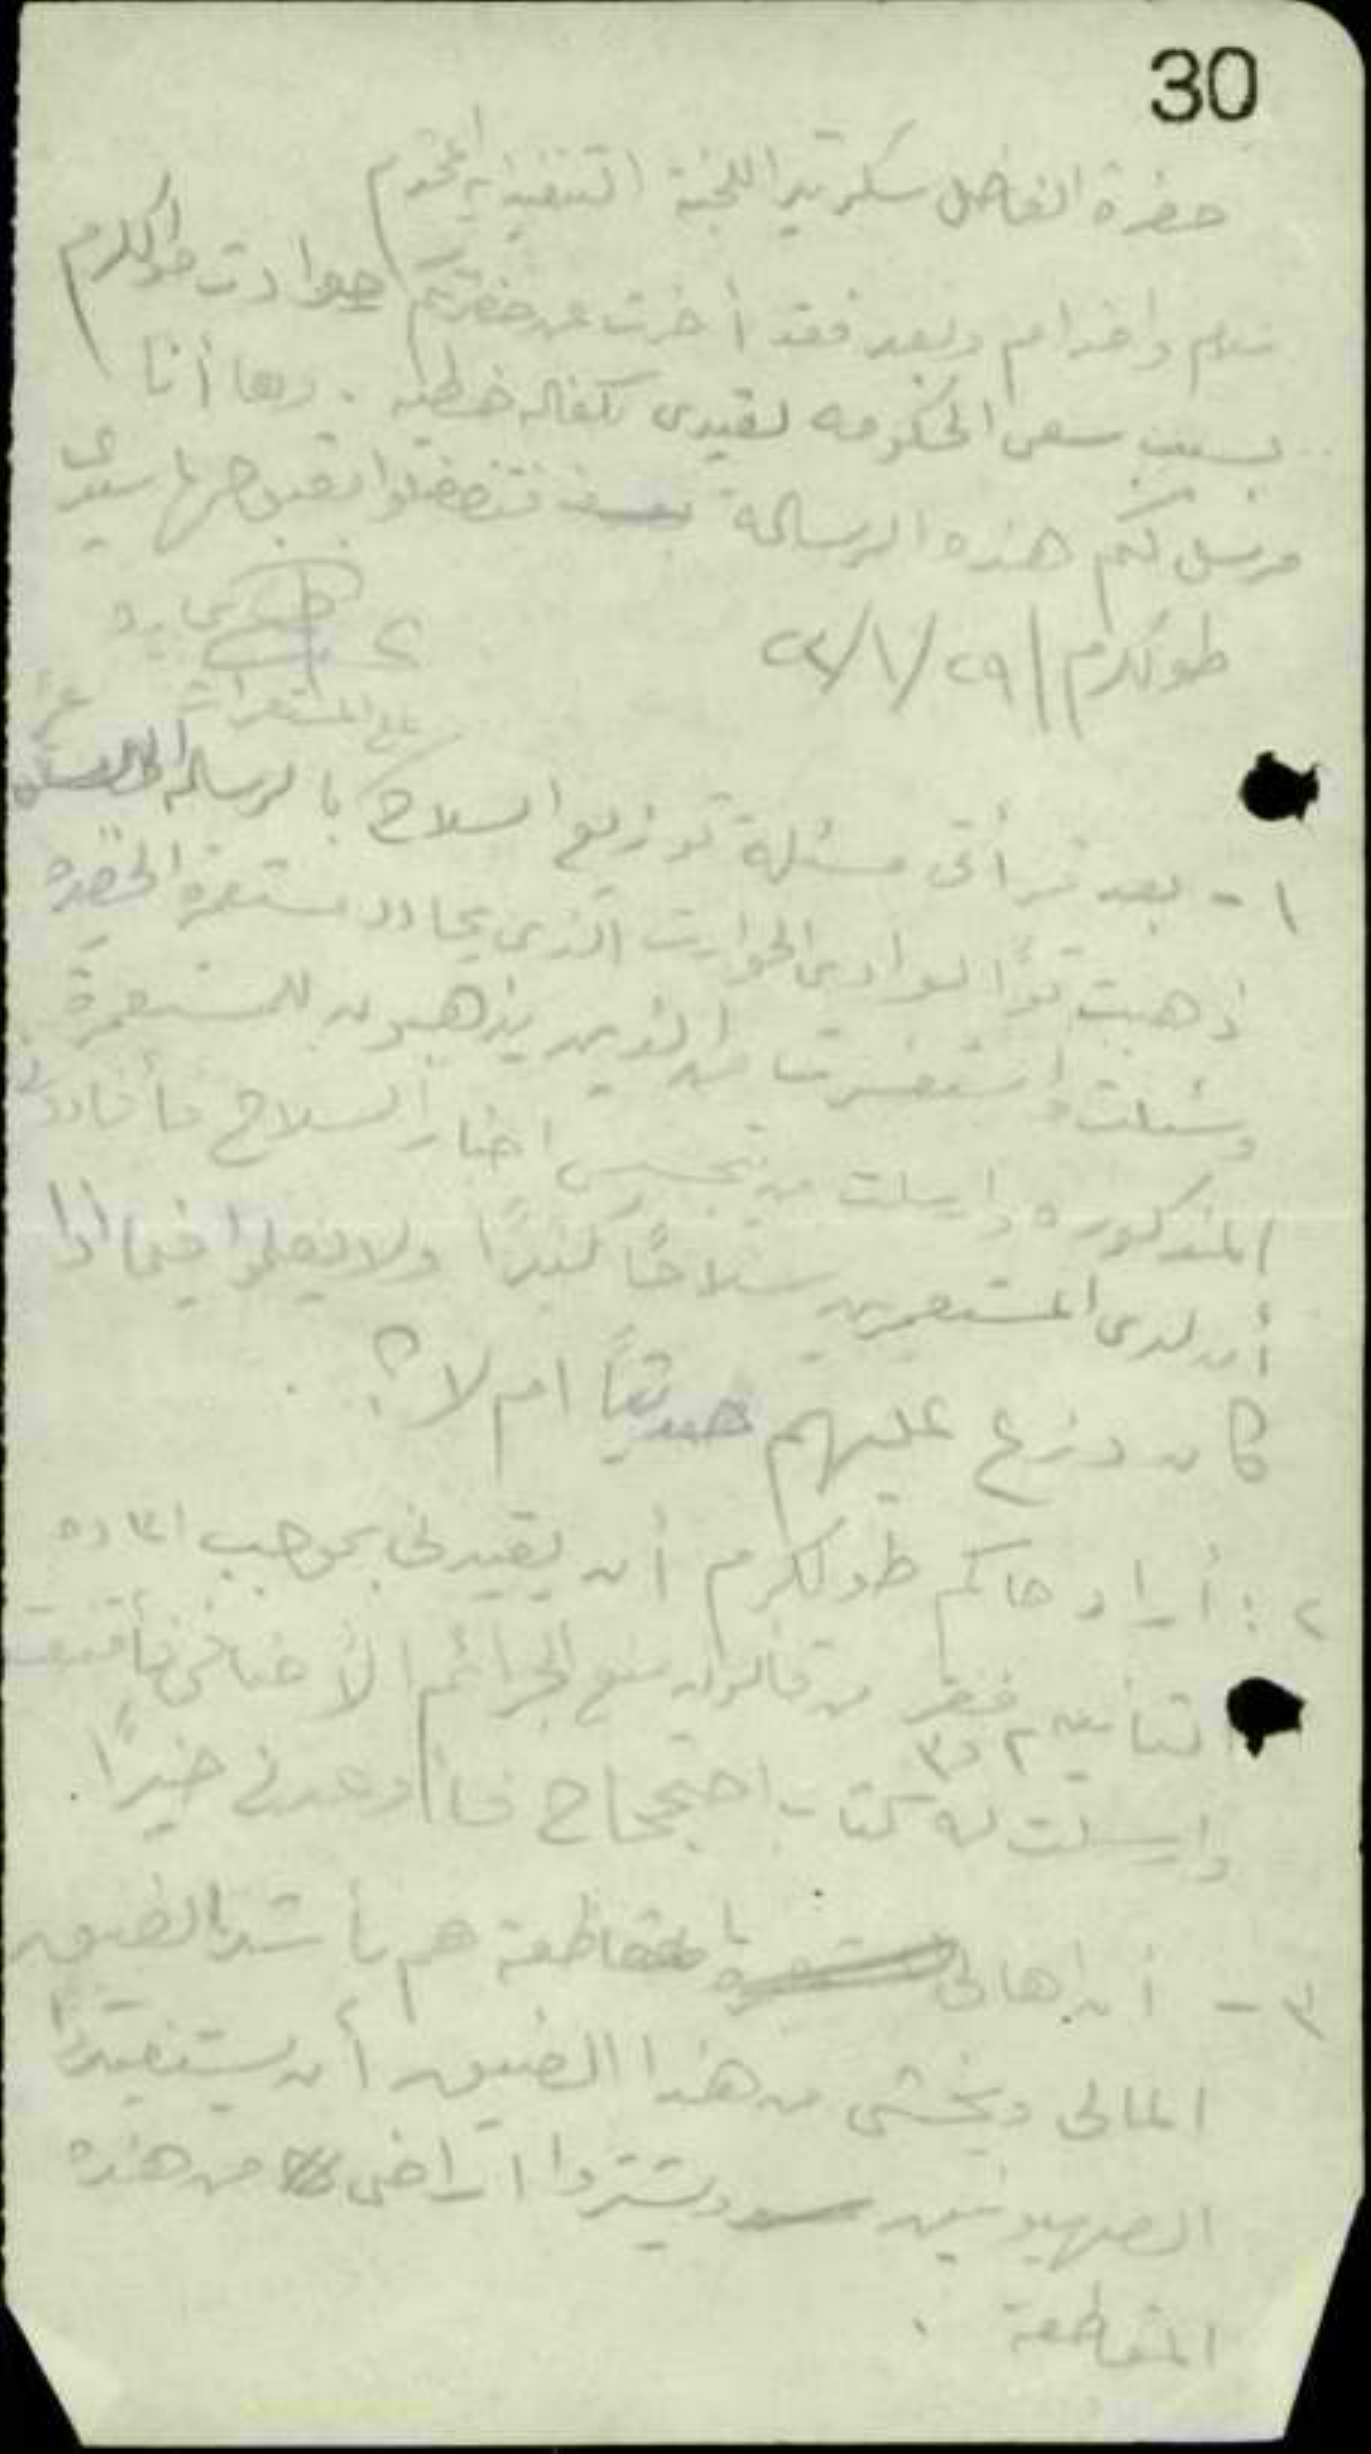 30
حضرة الفاضل سكرتير اللجنة التنفيذية المحترم
سلام واحترام وبعد فقد أخرت عن حضرتكم حوادث طولكرم
بسبب سعي الحكومه لقيدي بكفاله خطيه . وها أنا
مرسل لكم هذه الرسالة فتفضلوا بقبولها سيدي
طولكرم ٢٩/١/
على المستعمرات
١ - بعد قرأتي مسئلة توزيع السلاح بالرسالة
ذهبت توًا لوادي الحوارث الذي يحادد مستعمرة الخضيره
وسئلت واستفسرت من الذين يذهبون للمستعمرة
المذكوره وارسلت من يتجسس اخبار السلاح فأفادوني
أن لدى المستعمرين سلاحًا كثيرًا ولا يعلموا فيما اذا
كان وزع عليهم حديثًا ام لا ؟ .
٢ : أراد حاكم طولكرم أن يقيدني بموجب الماده
الثانيه فقره ٢ و٣ من قانون منع الجرائم الأضافي
وارسلت له كتاب احتجاج وعدني خيرًا .
٣ - أن اهالي المقاطعة هم بأشد الضيق
المالي ويخشى من هذا الضيق أن يستفيد
الصهيونيين ويشتروا اراضي من هذه
المقاطعة .